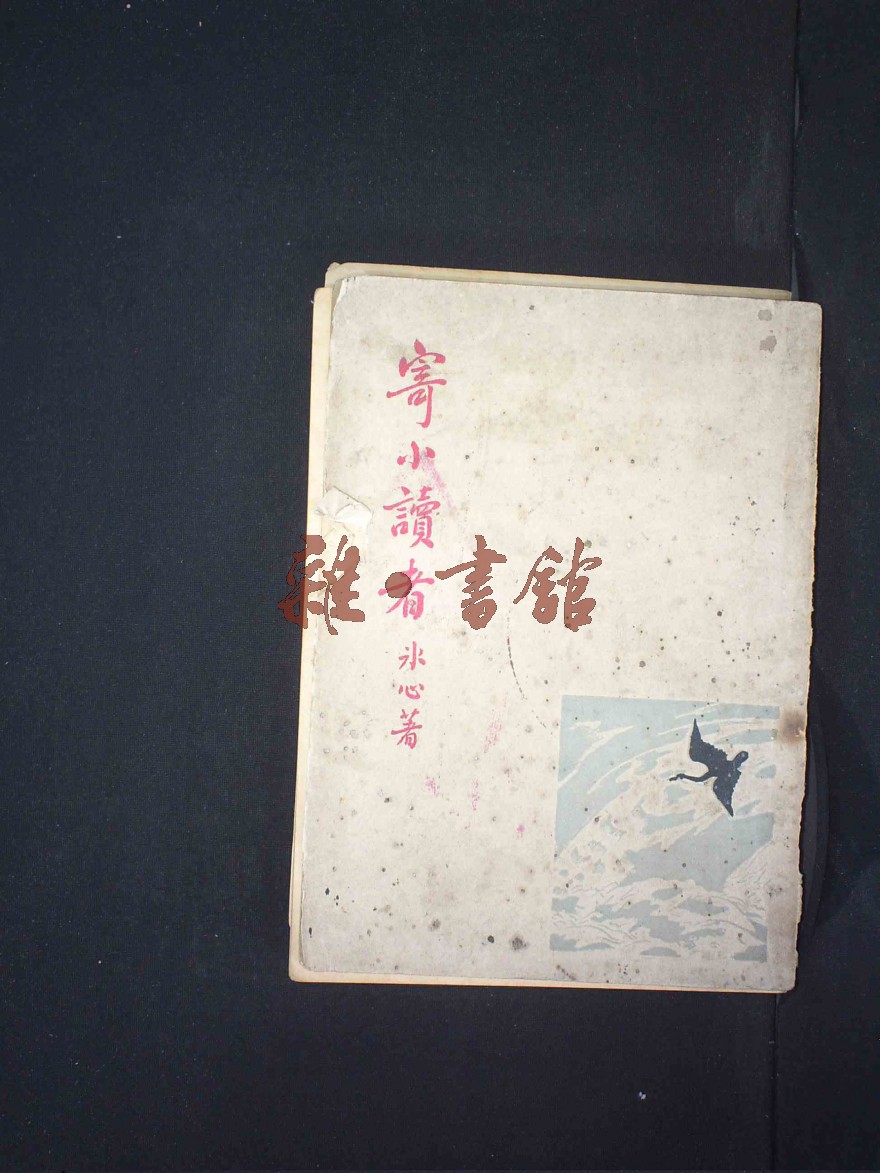 寄小讀者
冰心著
雜·書館